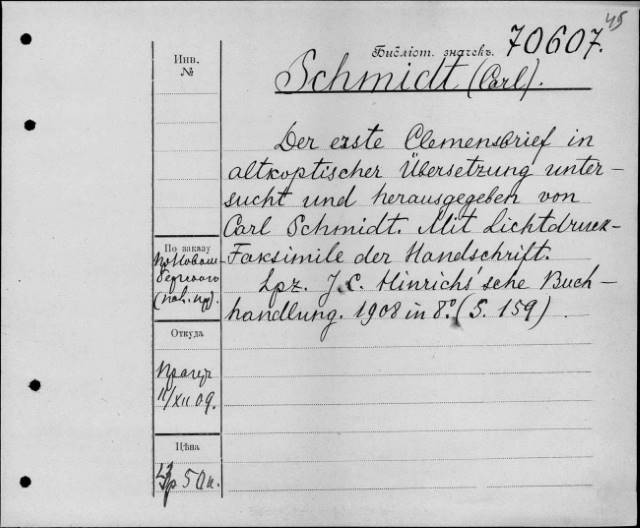 45
Библіот. значекъ. 70607.
Инв.
№
Schmidt (Carl).
Der erste Clemensbrief in
altkoptischer Übersetzung unter-
sucht und herausgegeben von
Carl Schmidt. Mit Lichtdruck-
Faksimile der Handschrift.
Lpz. J. C. Hinrichs'sche Buch-
handlung. 1908 in 8º. (S. 159).
По заказу
Откуда
11/XII 09.
Цѣна
50 к.